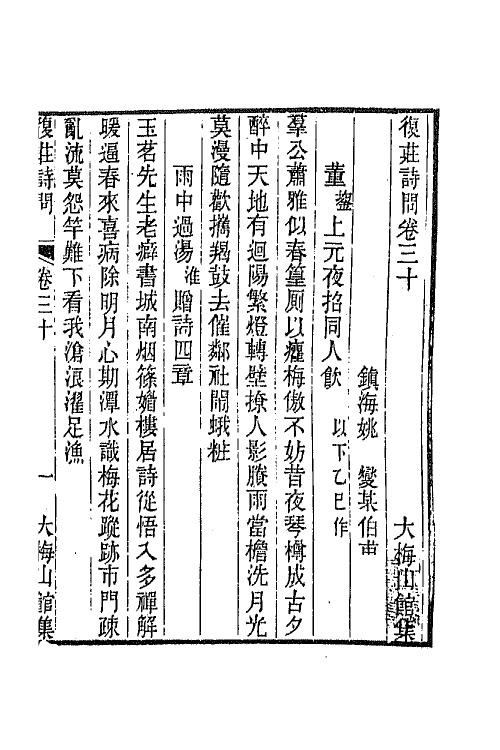 復莊詩問卷三十 大梅山館集
鎮海姚 燮某伯甫
董上元夜招同人飲 以下乙巳作
羣公蕭雅似春篁厠以癯梅傲不妨昔夜琴樽成古夕
醉中天地有迴陽繁燈轉壁撩人影賸雨當檐洗月光
莫漫隨歡撾羯鼓去催鄰社鬧蛾粧
雨中過湯淮贈詩四章
玉茗先生老癖書城南烟篠媚樓居詩從悟入多禪解
暖逼春來喜病除明月心期潭水識梅花蹤跡市門疎
亂流莫怨竿難下看我滄浪濯足漁
復莊詩問 卷三十 一 大梅山館集